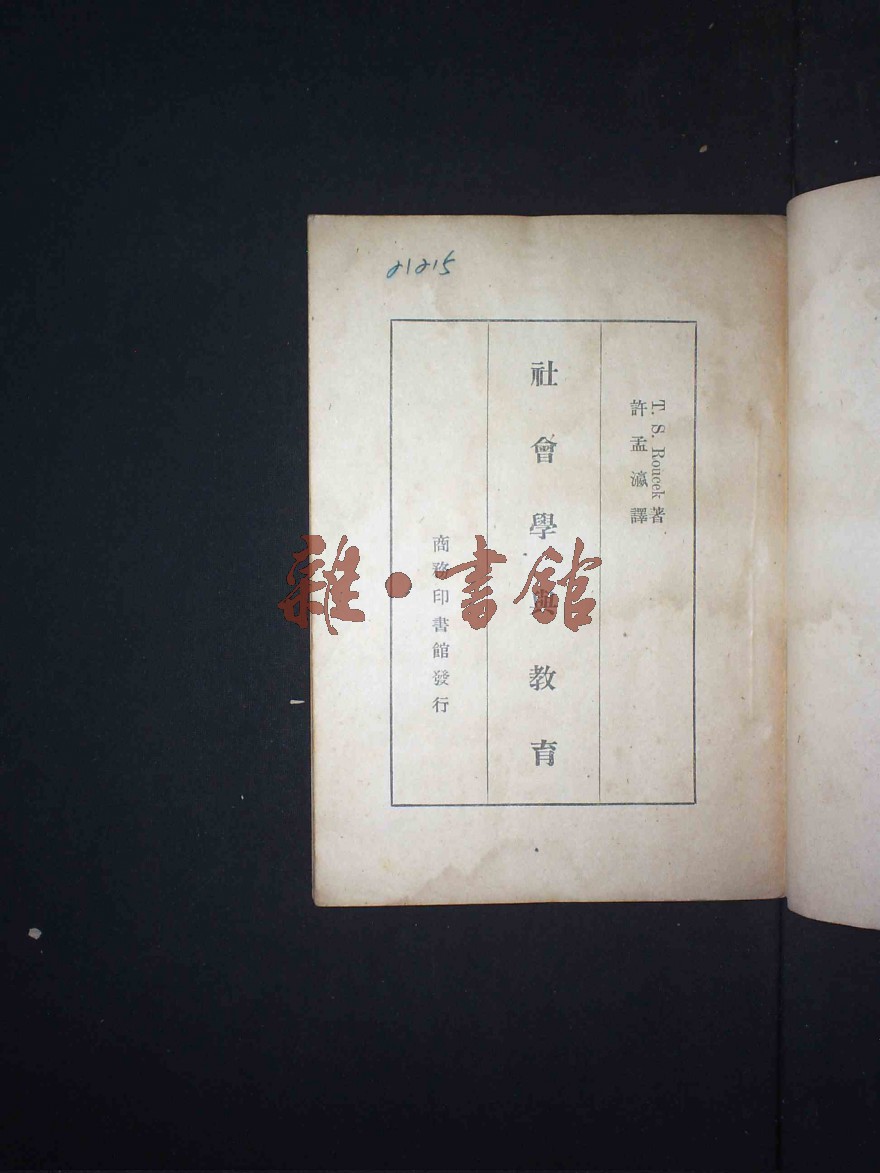 21215
T. S. Roucek 著
許孟瀛譯
社會學與教育
商務印書館發行
雜·書館